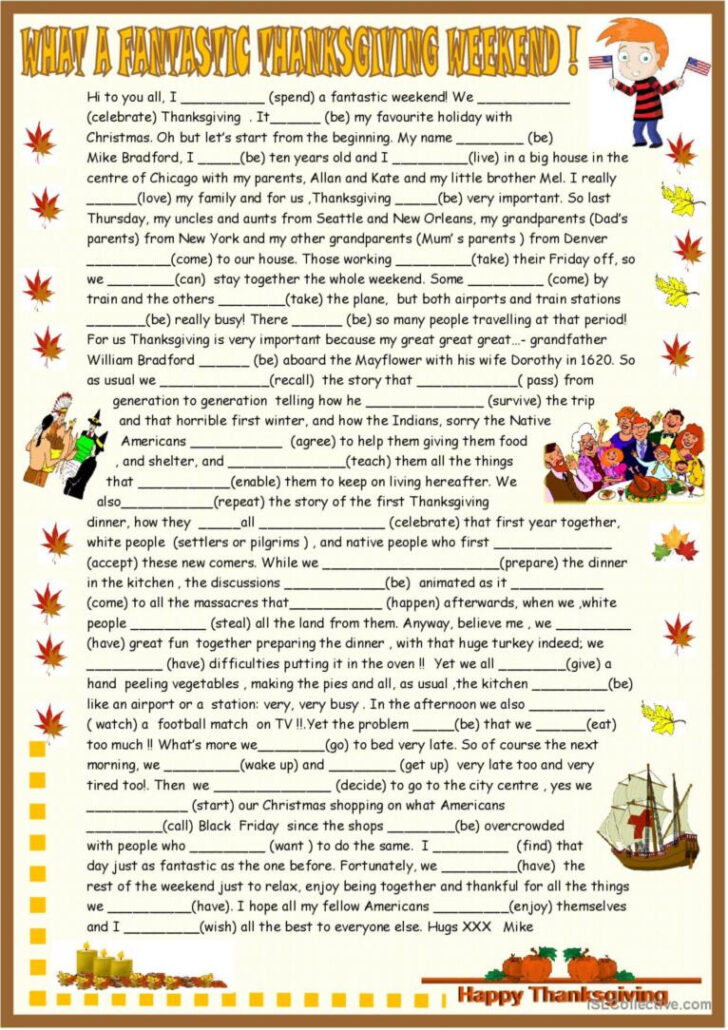 WHAT A FANTASTIC THANKSGIVING WEEKEND !
Hi to you all, I __________ (spend) a fantastic weekend! We ___________
(celebrate) Thanksgiving . It______ (be) my favourite holiday with
Christmas. Oh but let's start from the beginning. My name ________ (be)
Mike Bradford, I _____(be) ten years old and I _________(live) in a big house in the
centre of Chicago with my parents, Allan and Kate and my little brother Mel. I really
______(love) my family and for us ,Thanksgiving _____(be) very important. So last
Thursday, my uncles and aunts from Seattle and New Orleans, my grandparents (Dad's
parents) from New York and my other grandparents (Mum' s parents ) from Denver
__________(come) to our house. Those working _________(take) their Friday off, so
we ________(can) stay together the whole weekend. Some _________ (come) by
train and the others ________(take) the plane, but both airports and train stations
_______(be) really busy! There ______ (be) so many people travelling at that period!
For us Thanksgiving is very important because my great great great...- grandfather
William Bradford ______ (be) aboard the Mayflower with his wife Dorothy in 1620. So
as usual we _____________(recall) the story that ____________( pass) from
generation to generation telling how he ______________ (survive) the trip
and that horrible first winter, and how the Indians, sorry the Native
Americans ___________ (agree) to help them giving them food
, and shelter, and ______________(teach) them all the things
that ___________(enable) them to keep on living hereafter. We
also___________(repeat) the story of the first Thanksgiving
dinner, how they _____all _______________ (celebrate) that first year together,
white people (settlers or pilgrims ) , and native people who first ______________
(accept) these new comers. While we _____________________(prepare) the dinner
in the kitchen , the discussions ____________(be) animated as it ___________
(come) to all the massacres that___________ (happen) afterwards, when we ,white
people _________ (steal) all the land from them. Anyway, believe me , we _________
(have) great fun together preparing the dinner , with that huge turkey indeed; we
_________ (have) difficulties putting it in the oven !! Yet we all ________(give) a
hand peeling vegetables , making the pies and all, as usual ,the kitchen _________(be)
like an airport or a station: very, very busy . In the afternoon we also _________
( watch) a football match on TV !!.Yet the problem _____(be) that we ______(eat)
too much !! What's more we________(go) to bed very late. So of course the next
morning, we _________(wake up) and ________ (get up) very late too and very
tired too!. Then we ______________ (decide) to go to the city centre , yes we
____________ (start) our Christmas shopping on what Americans
_________(call) Black Friday since the shops ________(be) overcrowded
with people who _________ (want ) to do the same. I _________ (find) that
day just as fantastic as the one before. Fortunately, we _________(have) the
rest of the weekend just to relax, enjoy being together and thankful for all the things
we __________(have). I hope all my fellow Americans __________(enjoy) themselves
and I _________(wish) all the best to everyone else. Hugs XXX Mike
Happy Thanksgiving
iSLCollective.com